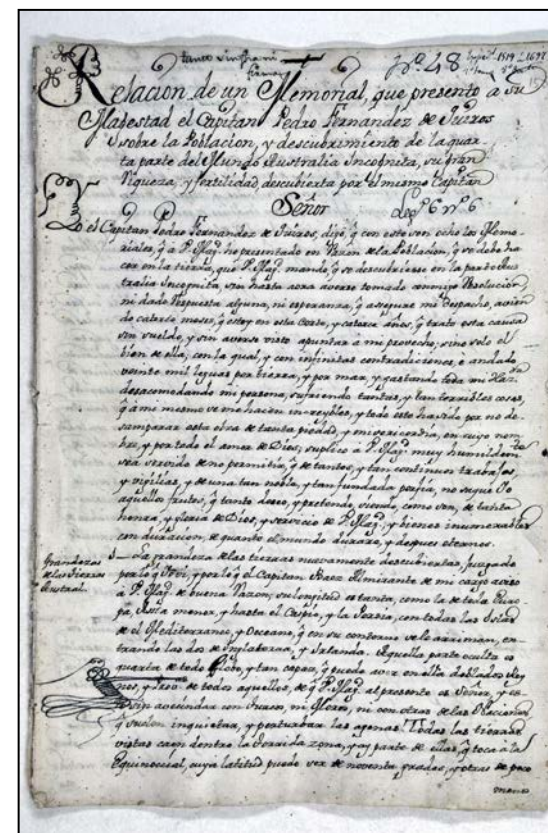 Nº 48
Relacion de un Memorial, que presentò a su
Magestad el Capitan Pedro Fernandez de Quiros
sobre la Poblacion, y descubrimiento de la quar-
ta parte del Mundo Australia Incognita, su gran
Riqueza, y fertilidad descubierta por el mismo Capitan
Señor
Legº 6 nº 6
Yo el Capitan Pedro Fernandez de Quiros, digo, q̃ con este son ocho los Memo-
riales, q̃ a V. Magᵈ. he presentado en Razon de la Poblacion, q̃ se debe ha
cer en la tierra, que V. Magᵈ. mandò, q̃ se descubriesse en la parte Aus
tralia Incognita, sin hasta aora averse tomado commigo Resolucion,
ni dado Respuesta alguna, ni esperanza, q̃ assegure mi despacho, avien
do catorce meses, q̃ estoy en esta Corte, y catorce años, q̃ trato esta causa
sin sueldo, y sin averse visto apuntar a mi provecho, sino solo el
bien de ella, con la qual, y con infinitas contradiciones, è andado
veinte mil leguas por tierra, y por mar, y gastando toda mi Hazᵈᵃ
desacomodando mi persona, sufriendo tantas, y tan terribles cosas,
q̃ a mi mesmo se me hacen increybles, y todo esto ha sido por no de-
samparar esta obra de tanta piedad, y misericordia, en cuyo nom
bre, y por todo el amor de Dios, suplico à V. Magᵈ. muy humildemᵗᵉ
sea servido de no permitir, q̃ de tantos, y tan continuos trabajos,
y vigilias, y de una tan noble, y tan fundada porfia, no saque Yo
aquellos frutos, q̃ tanto deseo, y pretendo, siendo, como son, de tanta
honra, y gloria de Dios, y servicio de V. Magᵈ. y bienes innumerables
con duracion, de quanto el mundo durare, y despues eternos.
Grandezas
de las tierras
Austral.
La grandeza de las tierras nuevamente descubiertas, juzgado
por lo q̃ Yo vi, y por lo q̃ el Capitan Paez Almirante de mi cargo aviso
à V. Magᵈ. de buena razon, su longitud es tanta, como la de toda Euro
pa, Assia menor, y hasta el Caspio, y la Persia, con todas las Islas
de el Mediterraneo, y Occeano, q̃ en su contorno se le arriman, en-
trando las dos de Inglaterra, y Irlanda. Aquella parte oculta es
quarta de todo Globo, y tan capaz, q̃ puede aver en ella doblados Rey
nos, y de todos aquellos, de q̃ V. Magᵈ. al presente es Señor, y es-
to sin avecindar con Turcos, ni Moros, ni con otras de las Naciones,
q̃ suelen inquietar, y perturbar las agenas. Todas las tierras
vistas caen dentro la Torrida zona, y ay parte de ellas, q̃ toca a la
Equinocial, cuya latitud puede ser de noventa grados, y otras de poco
menos